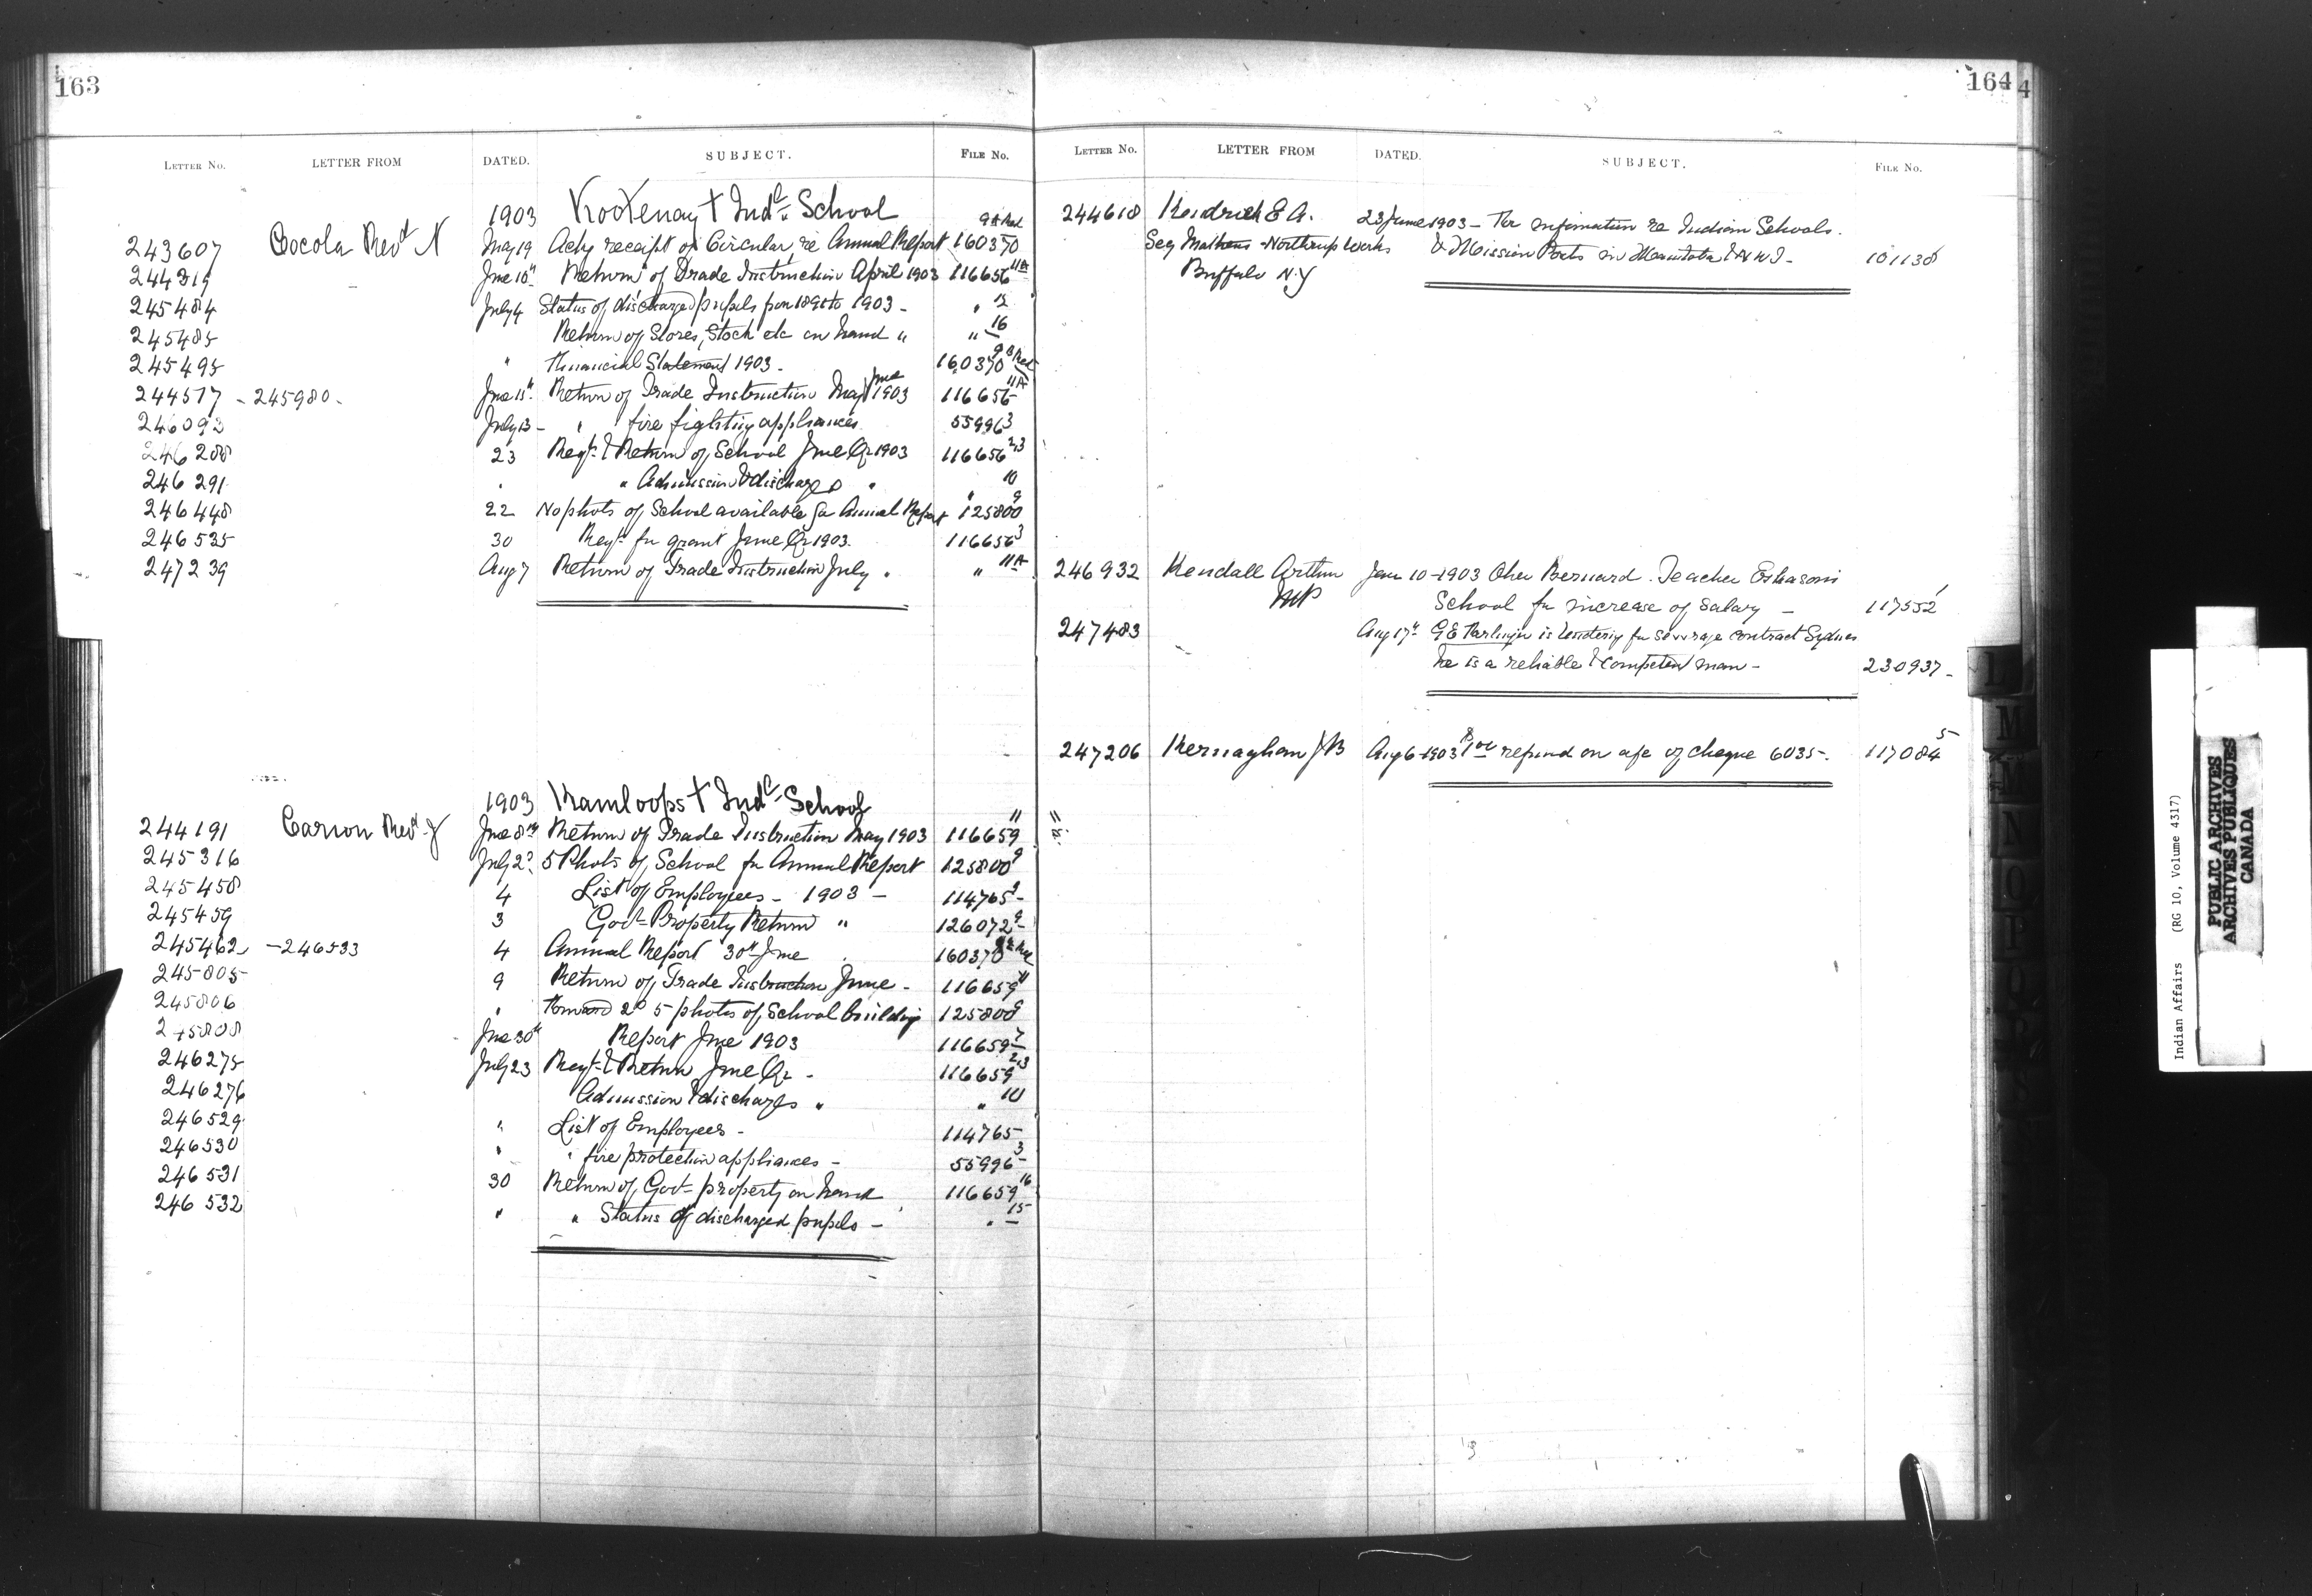 163
LETTER No. LETTER FROM DATED. SUBJECT. FILE No.
1903 Kootenay + Indl. School
243607 Cocola Revd N May 19 Ackg receipt of Circular re Annual Report 160370 9A Red
244319 June 10th Return of Trade Instruction April 1903 116656 11A
245484 July 4 Status of discharged pupils from to 1903 - " 15
245485 Return of Stores, Stock etc on hand " " 16
245495 " Financial Statement 1903. 160370 9B Red
244577 - 245980 - June 15th Return of Trade Instruction May June 1903 116656 11A
246093 July 13 - " fire fighting appliances 55996 3
246288 23 Reqt & Return of School June Qr 1903 116656 2,3
246291 " " Admission & discharges " " 10
246448 22 No photos of School available for Annual Report 125800 9
246535 30 Reqt for grant June Qr 1903. 116656 3
247239 Aug 7 Return of Trade Instruction July " " 11A
1903 Kamloops + Indl School
244191 Carion Revd J June 8th Return of Trade Instruction May 1903 116659 11
245316 July 2 5 Photos of School for Annual Report 125800 9
245458 4 List of Employees - 1903 - 114765
245459 3 Govt Property Return " 126072 9
245462 - 246533 4 Annual Report 30th June 160370
245805 9 Return of Trade Instruction June - 116659 11
245806 " Forward 5 photos of School building 125800 9
245808 June 30th Report June 1903 116659 7
246275 July 23 Reqt & Return June Qr - 116659 2,3
246276 Admission & discharges " " 10
246529 " List of Employees - 114765
246530 " " fire protection appliances - 55996 3
246531 30 Return of Govt property on hand 116659 16
246532 " " Status of discharged pupils - " 15
164
LETTER No. LETTER FROM DATED. SUBJECT. FILE No.
244618 Kendrick E A. 23 June 1903 - For information re Indian Schools.
Secy Mathews-Northrup Works & Mission Posts in Manitoba & N W T - 101138
Buffalo N.Y
246932 Kendall Arthur Jan 10 - 1903 Bernard. Teacher Eskasoni
MP School for increase of salary - 117552
247483 Aug 17th G E is tendering for sewerage contract Sydney
he is a reliable & competent man - 230937 -
247206 Kernaghan J B Aug 6 - 1903 refund on a/c of cheque 6035 -. 117084 5
L
M
N
O
Indian Affairs (RG 10, Volume 4317)
PUBLIC ARCHIVES
ARCHIVES PUBLIQUES
CANADA